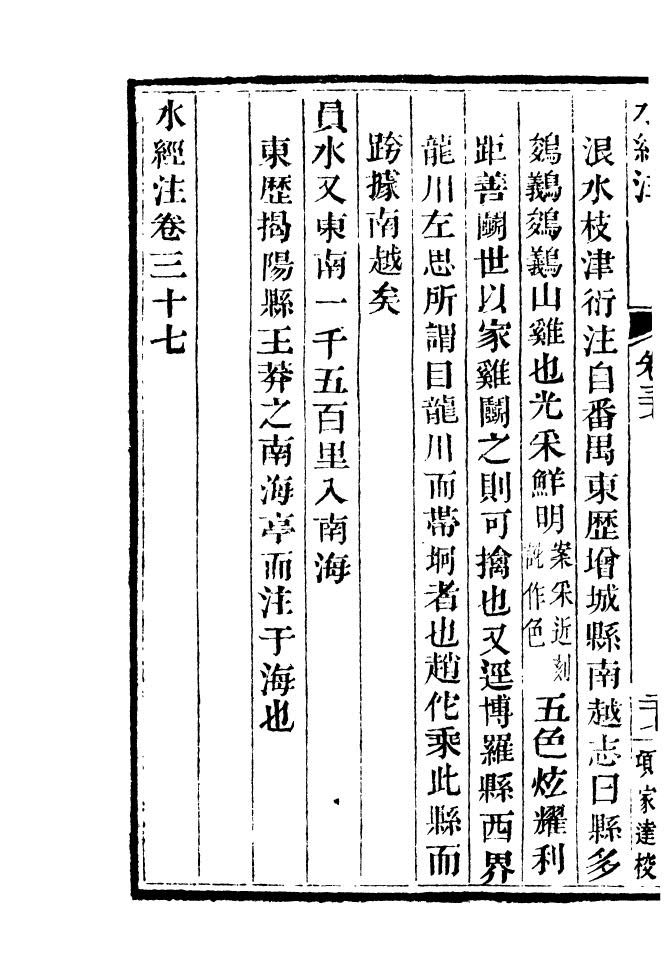 水經注 卷三十七 項家達校
泿水枝津衍注自番禺東歴增城縣南越志曰縣多
鵕鸃鵕鸃山雞也光采鮮明案采近刻訛作色五色炫耀利
距善鬭世以家雞鬭之則可擒也又逕博羅縣西界
龍川左思所謂目龍川而帶坰者也趙佗乘此縣而
跨據南越矣
員水又東南一千五百里入南海
東歴揭陽縣王莽之南海亭而注于海也
水經注卷三十七